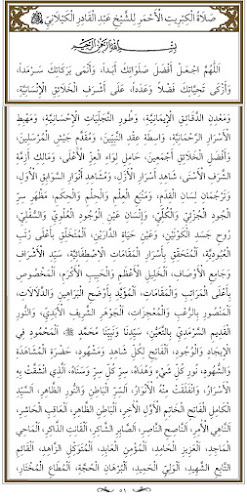 صَلَاةُ الْكِبْرِيتِ الْأَحْمَرِ لِلشَّيْخِ عَبْدِ الْقَادِرِ الْكَيْلَانِيِّ
بِسْمِ اللَّهِ الرَّحْمَنِ الرَّحِيمِ
اَللَّهُمَّ اجْعَلْ أَفْضَلَ صَلَوَاتِكَ أَبَدًا، وَأَنْمَى بَرَكَاتِكَ سَرْمَدًا،
وَأَزْكَى تَحِيَّاتِكَ فَضْلًا وَعَدَدًا، عَلَى أَشْرَفِ الْخَلَائِقِ الْإِنْسَانِيَّةِ،
وَمَعْدِنِ الدَّقَائِقِ الْإِيمَانِيَّةِ، وَطُورِ التَّجَلِّيَاتِ الْإِحْسَانِيَّةِ، وَمَهْبِطِ
الْأَسْرَارِ الرَّحْمَانِيَّةِ، وَاسِطَةِ عِقْدِ النَّبِيِّينَ، وَمُقَدَّمِ جَيْشِ الْمُرْسَلِينَ،
وَأَفْضَلِ الْخَلَائِقِ أَجْمَعِينَ، حَامِلِ لِوَاءِ الْعِزِّ الْأَعْلَى، وَمَالِكِ أَزِمَّةِ
الشَّرَفِ الْأَسْنَى، شَاهِدِ أَسْرَارِ الْأَزَلِ، وَمُشَاهِدِ أَنْوَارِ السَّوَابِقِ الْأُوَلِ،
وَتَرْجُمَانِ لِسَانِ الْقِدَمِ، وَمَنْبَعِ الْعِلْمِ وَالْحِلْمِ وَالْحِكَمِ، مَظْهَرِ سِرِّ
الْجُودِ الْجُزْئِيِّ وَالْكُلِّيِّ، وَإِنْسَانِ عَيْنِ الْوُجُودِ الْعُلْوِيِّ وَالسُّفْلِيِّ،
رُوحِ جَسَدِ الْكَوْنَيْنِ، وَعَيْنِ حَيَاةِ الدَّارَيْنِ، الْمُتَخَلِّقِ بِأَعْلَى رُتَبِ
الْعُبُودِيَّةِ، الْمُتَحَقِّقِ بِأَسْرَارِ الْمَقَامَاتِ الْاِصْطِفَائِيَّةِ، سَيِّدِ الْأَشْرَافِ
وَجَامِعِ الْأَوْصَافِ، الْخَلِيلِ الْأَعْظَمِ وَالْحَبِيبِ الْأَكْرَمِ، الْمَخْصُوصِ
بِأَعْلَى الْمَرَاتِبِ وَالْمَقَامَاتِ، الْمُؤَيَّدِ بِأَوْضَحِ الْبَرَاهِينِ وَالدَّلَالَاتِ،
الْمَنْصُورِ بِالرُّعْبِ وَالْمُعْجِزَاتِ، الْجَوْهَرِ الشَّرِيفِ الْأَبَدِيِّ، وَالنُّورِ
الْقَدِيمِ السَّرْمَدِيِّ سَيِّدِنَا وَنَبِيِّنَا مُحَمَّدٍ ﷺ الْمَحْمُودِ فِي
الْإِيجَادِ وَالْوُجُودِ، الْفَاتِحِ لِكُلِّ شَاهِدٍ وَمَشْهُودٍ، حَضْرَةِ الْمُشَاهَدَةِ
وَالشُّهُودِ، نُورِ كُلِّ شَيْءٍ وَهُدَاهُ، سِرِّ كُلِّ سِرٍّ وَسَنَاهُ، الَّذِي انْشَقَّتْ بِهِ
الْأَسْرَارُ، وَانْفَلَقَتْ مِنْهُ الْأَنْوَارُ، السِّرِّ الْبَاطِنِ وَالنُّورِ الظَّاهِرِ، السَّيِّدِ
الْكَامِلِ الْفَاتِحِ الْخَاتِمِ الْأَوَّلِ الْآخِرِ، الْبَاطِنِ الظَّاهِرِ، الْعَاقِبِ الْحَاشِرِ،
النَّاهِي الْآمِرِ، النَّاصِحِ النَّاصِرِ، الصَّابِرِ الشَّاكِرِ، الْقَانِتِ الذَّاكِرِ، الْمَاحِي
الْمَاجِدِ، الْعَزِيزِ الْحَامِدِ، الْمُؤْمِنِ الْعَابِدِ، الْمُتَوَكِّلِ الزَّاهِدِ، الْقَائِمِ
التَّابِعِ الشَّهِيدِ، الْوَلِيِّ الْحَمِيدِ، الْبُرْهَانِ الْحُجَّةِ، الْمُطَاعِ الْمُخْتَارِ،